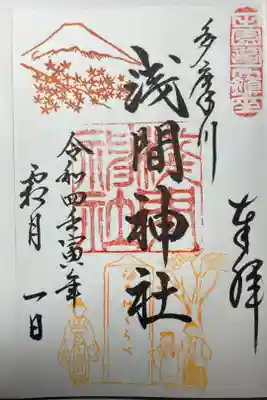 奉拝
多摩川
浅間神社
令和四壬寅年
霜月一日